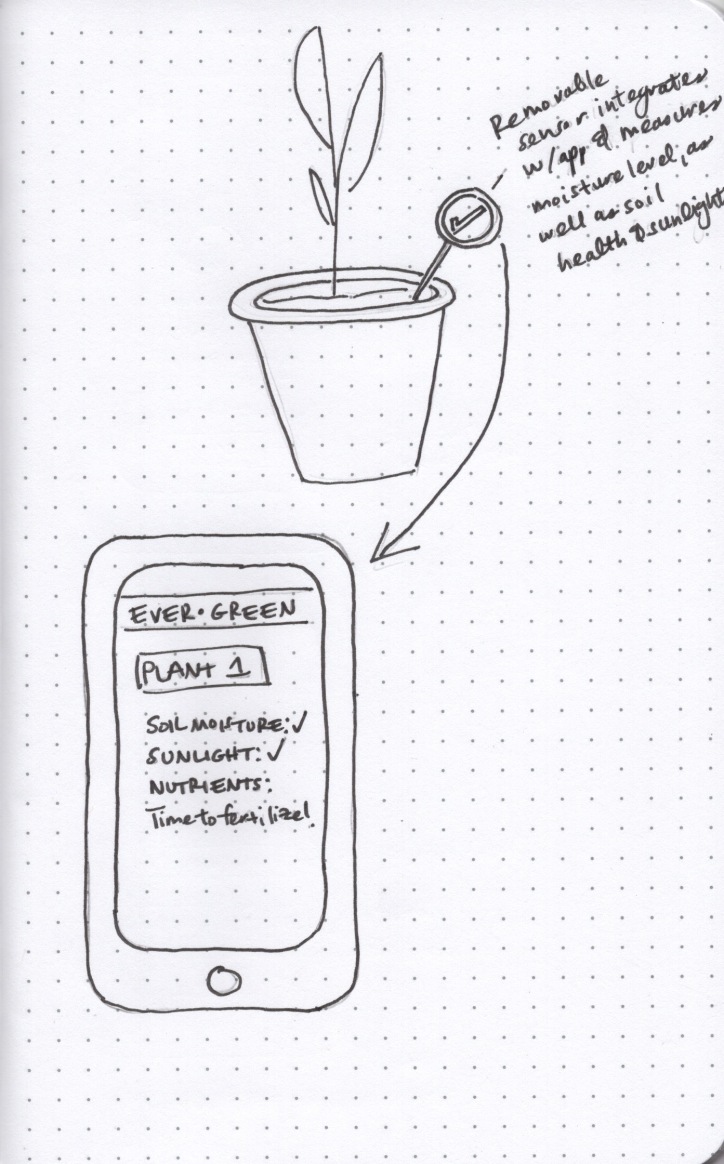 Removable
sensor integrates
w/app & measures
moisture level, as
well as soil
health & sunlight
EVER·GREEN
PLANT 1
SOIL MOISTURE: ✓
SUNLIGHT: ✓
NUTRIENTS:
Time to fertilize!